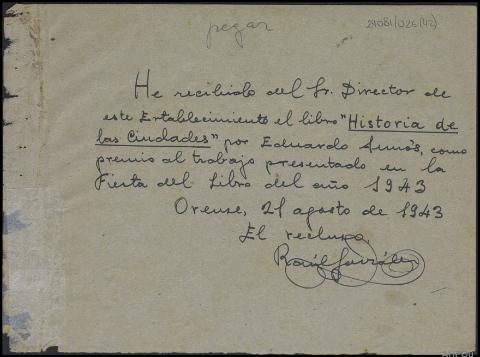 pegar
24081/026(42)
He recibido del Sr. Director de
este Establecimiento el libro "Historia de
las Ciudades" por Eduardo Aunós, como
premio al trabajo presentado en la
Fiesta del Libro del año 1943
Orense, 21 agosto de 1943
El recluso,
Raúl González